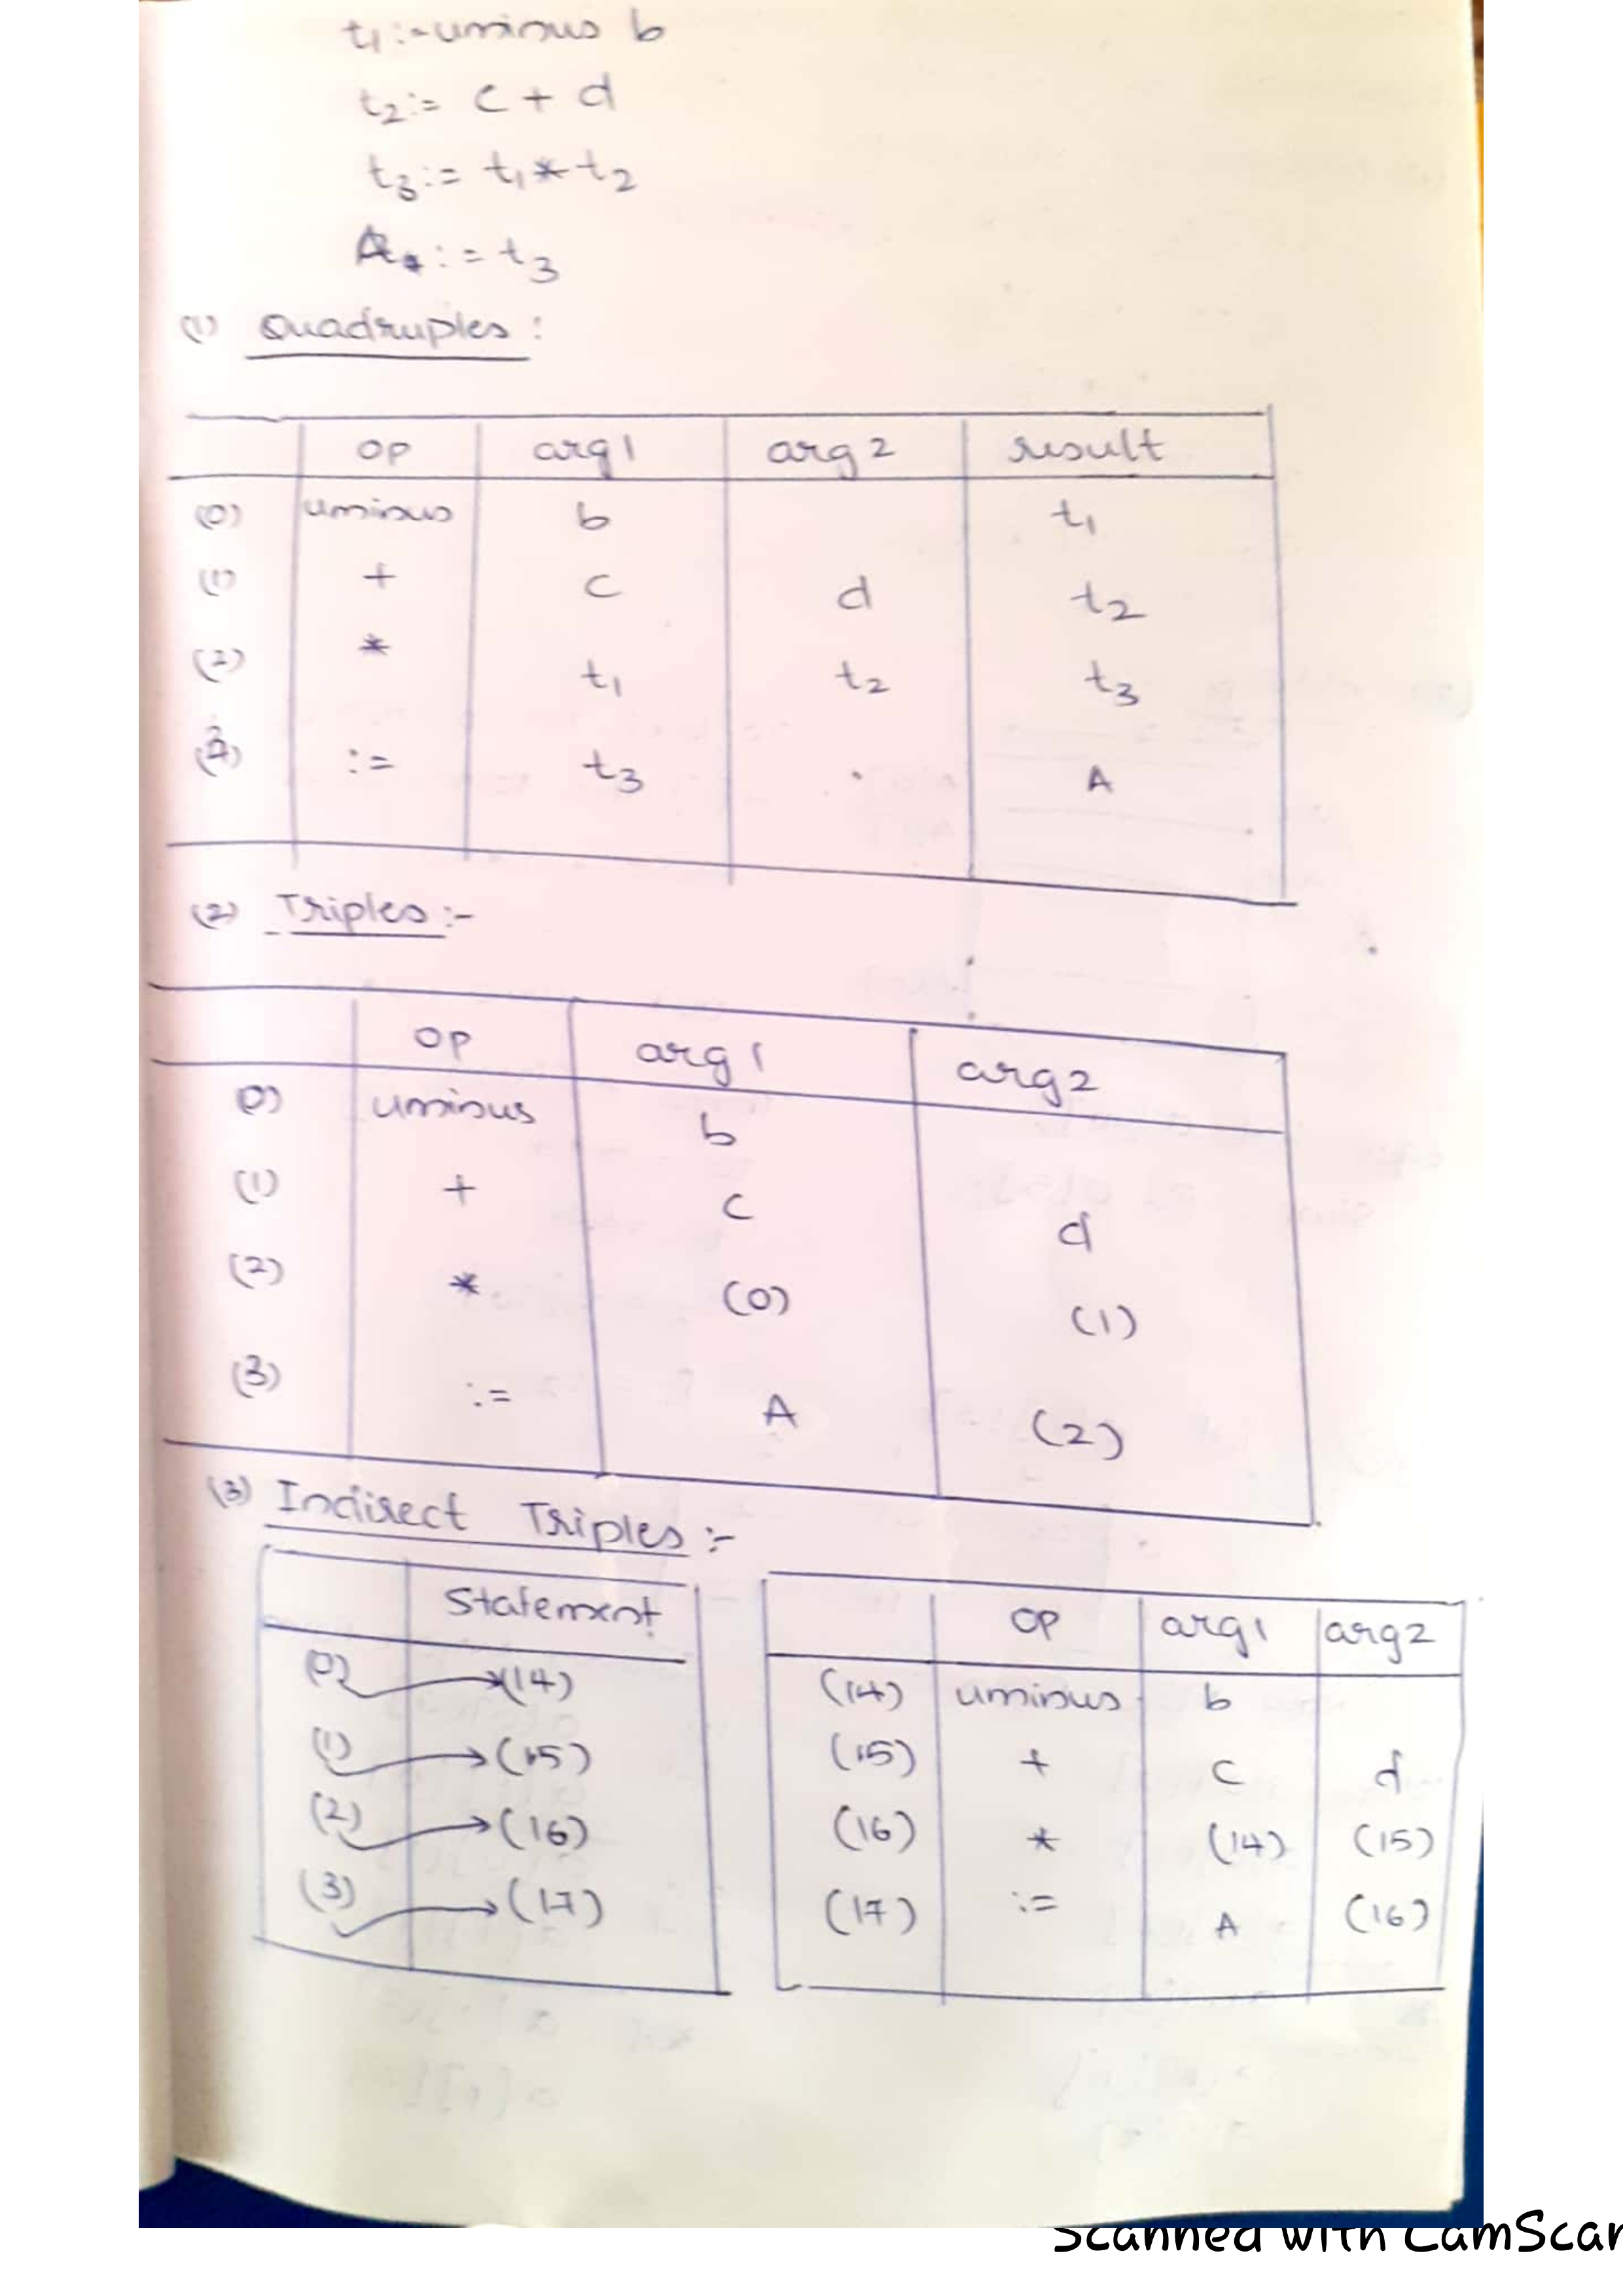 t1 :- uminus b
t2 := c + d
t3 := t1 * t2
A := t3
(1) Quadruples :
op arg1 arg2 result
(0) uminus b t1
(1) + c d t2
(2) * t1 t2 t3
(3) := t3 A
(2) Triples :-
op arg1 arg2
(0) uminus b
(1) + c d
(2) * (0) (1)
(3) := A (2)
(3) Indirect Triples :-
Statement
(0) → (14)
(1) → (15)
(2) → (16)
(3) → (17)
op arg1 arg2
(14) uminus b
(15) + c d
(16) * (14) (15)
(17) := A (16)
Scanned with CamScan